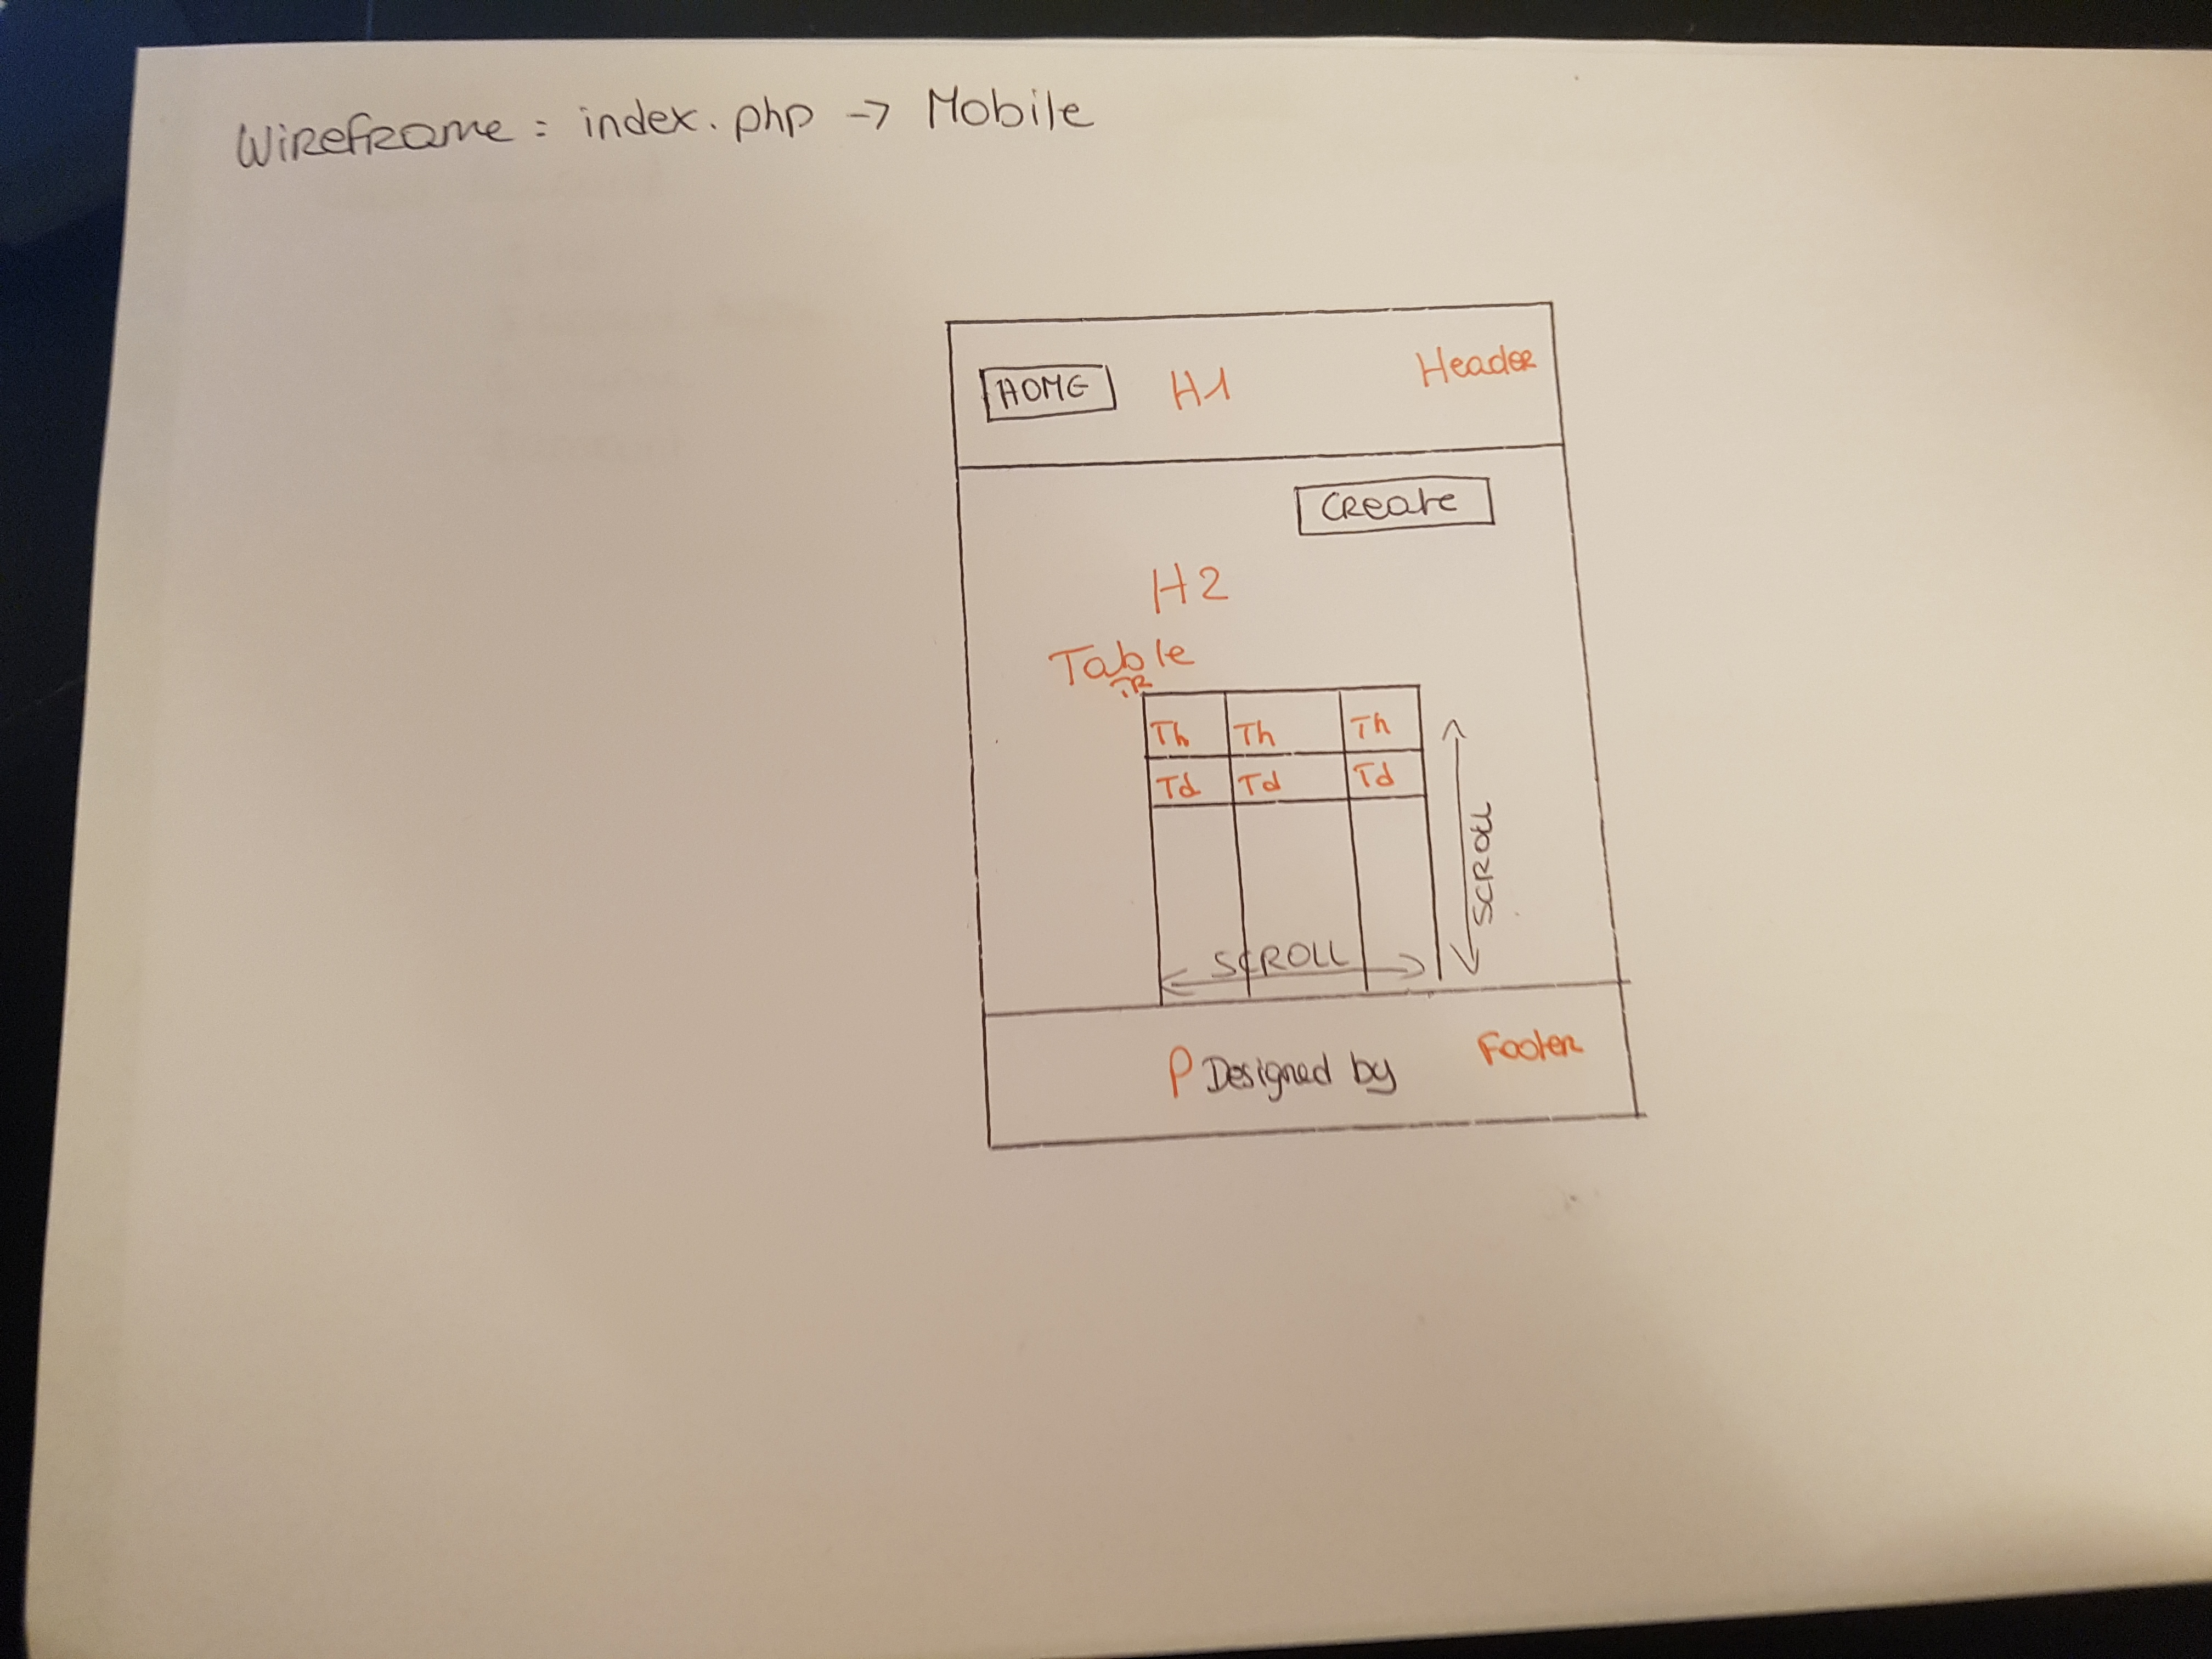 Wireframe = index.php -> Mobile
HOME H1 Header
Create
H2
Table
TR
Th Th Th
Td Td Td
SCROLL
SCROLL
P Designed by Footer